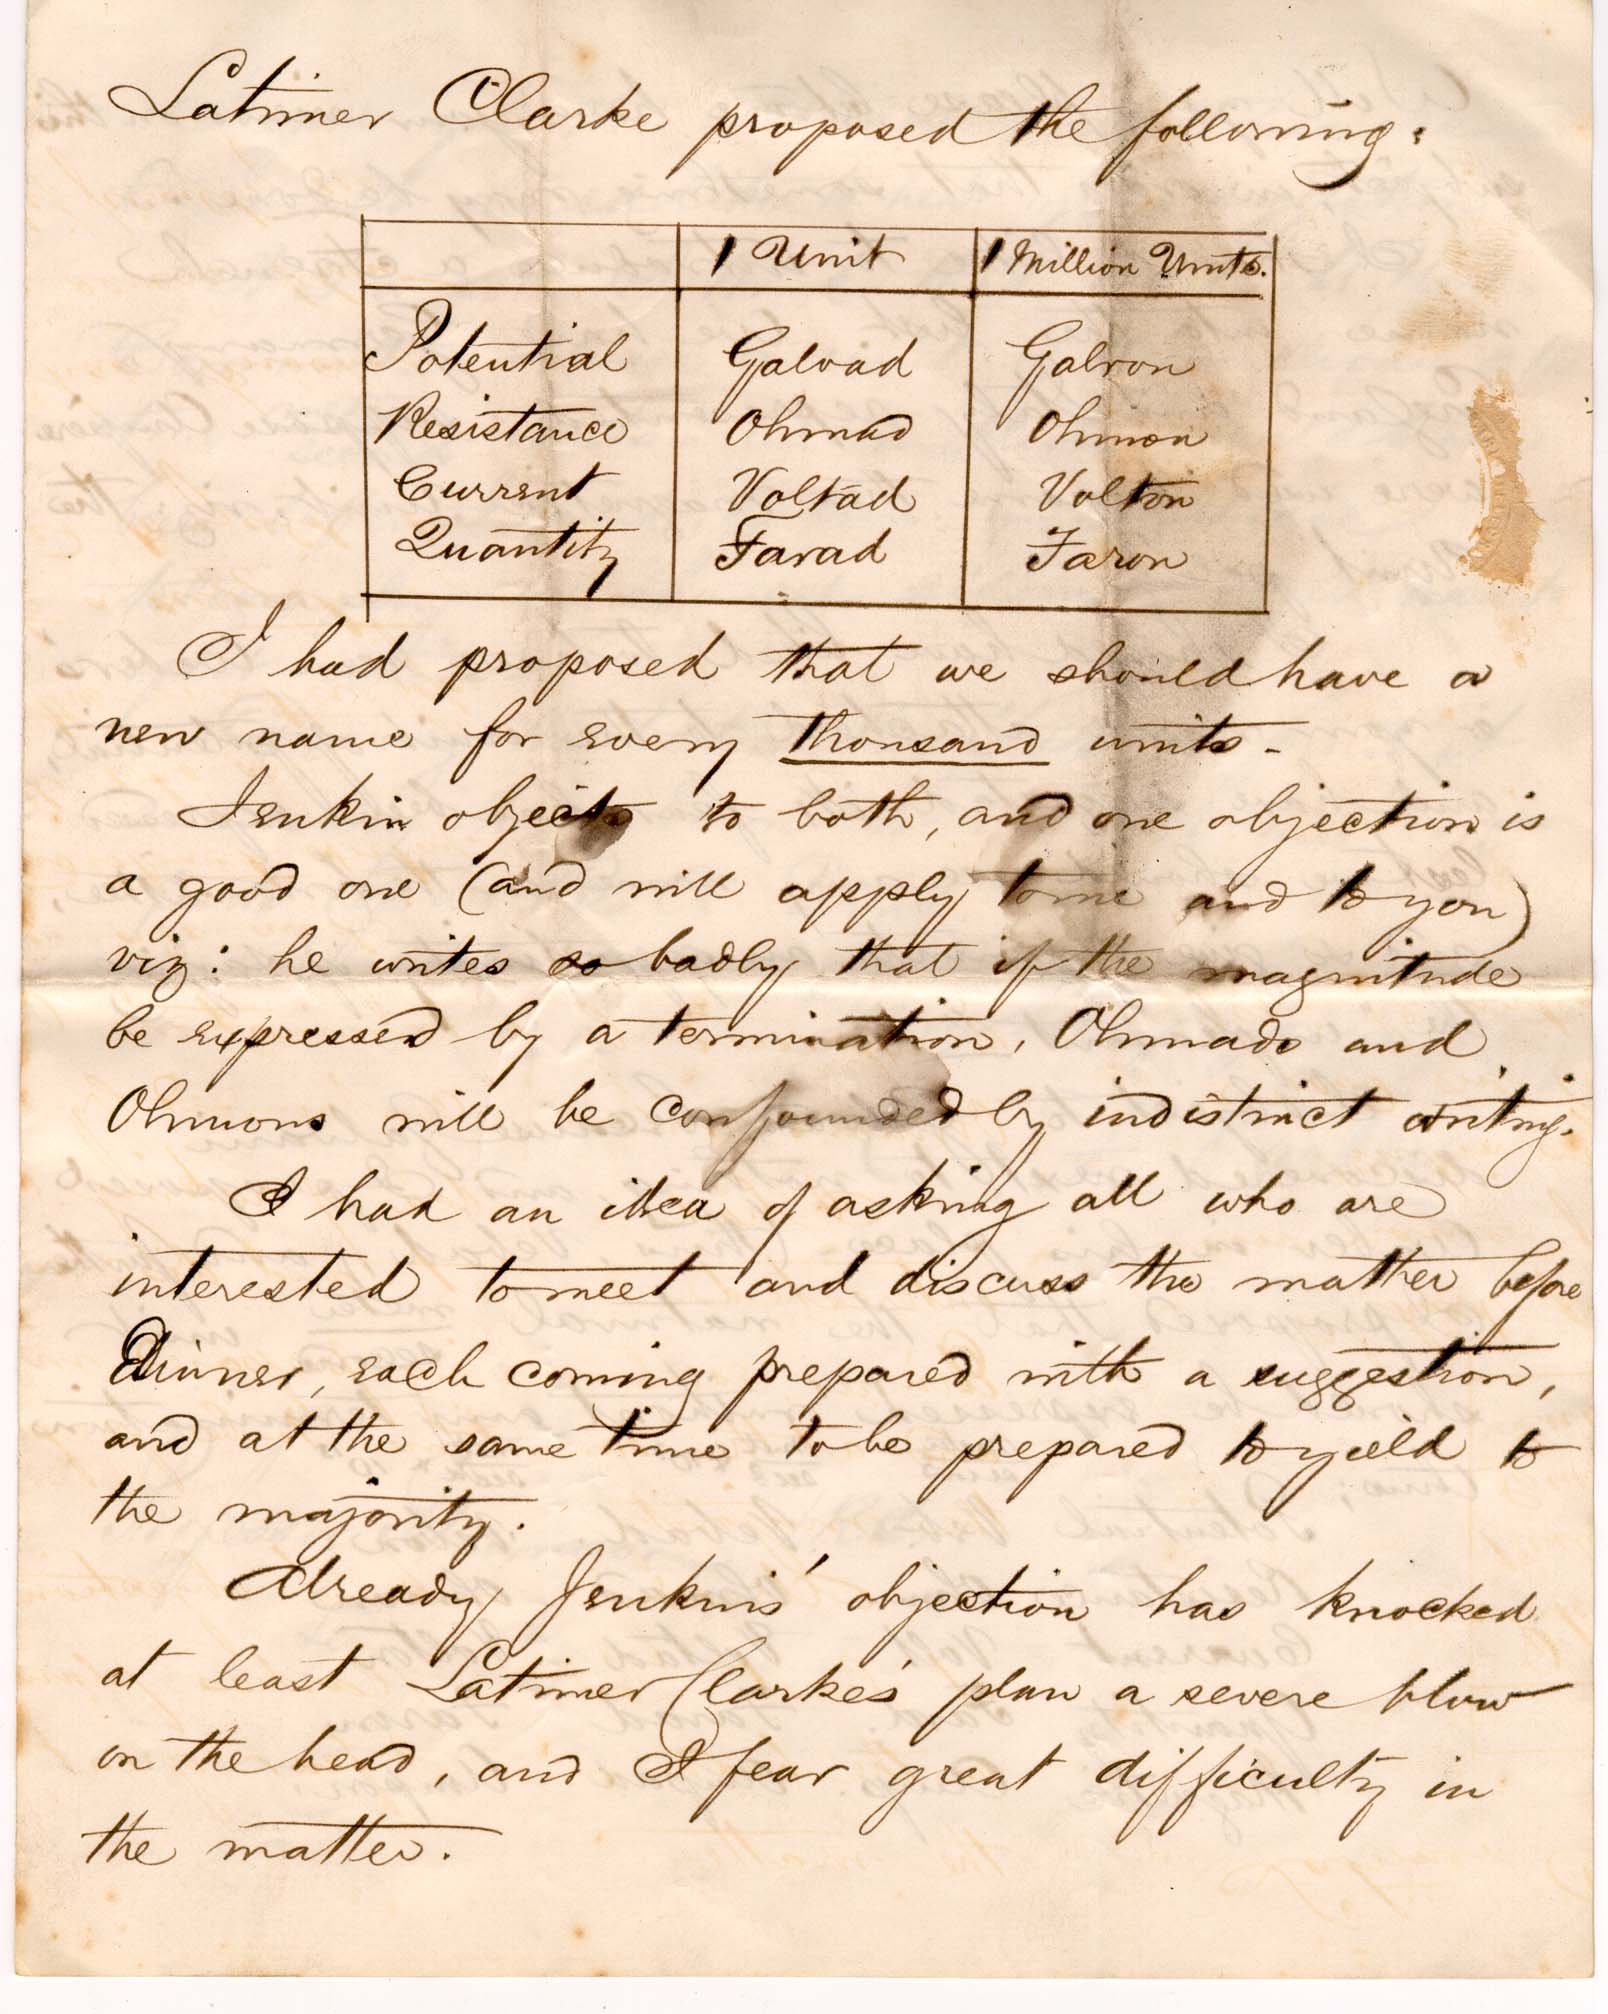 Latimer Clarke proposed the following:
1 Unit 1 Million Units.
Potential Galvad Galvon
Resistance Ohmad Ohmon
Current Voltad Volton
Quantity Farad Faron
I had proposed that we should have a
new name for every thousand units -
Jenkin objects to both, and one objection is
a good one (and will apply to me and to you)
viz: he writes so badly that if the magnitude
be expressed by a termination, Ohmads and
Ohmons will be confounded by indistinct writing.
I had an idea of asking all who are
interested to meet and discuss the matter before
dinner, each coming prepared with a suggestion,
and at the same time to be prepared to yield to
the majority.
Already Jenkins' objection has knocked
at least Latimer Clarke's plan a severe blow
on the head, and I fear great difficulty in
the matter.